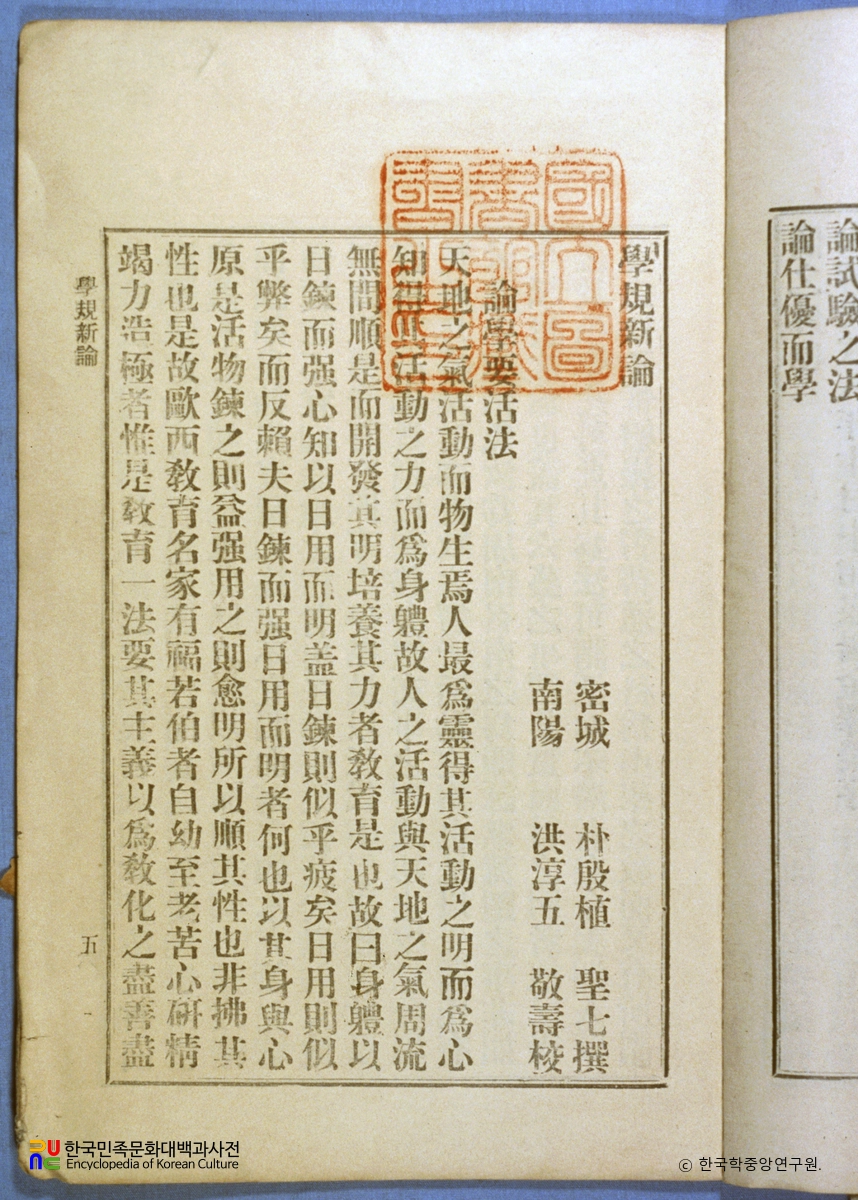 論試驗之法
論仕優而學
學規新論
密城 朴殷植 聖七撰
南陽 洪淳五 敬壽校
論學要活法
天地之氣活動而物生焉人最爲靈得其活動之明而爲心
知得其活動之力而爲身軆故人之活動與天地之氣周流
無間順是而開發其明培養其力者敎育是也故曰身軆以
日鍊而强心知以日用而明盖日鍊則似乎疲矣日用則似
乎弊矣而反賴夫日鍊而强日用而明者何也以其身與心
原是活物鍊之則益强用之則愈明所以順其性也非拂其
性也是故歐西敎育名家有福若伯者自幼至老苦心硏精
竭力造極者惟是敎育一法要其主義以爲敎化之盡善盡
學規新論
五
한국민족문화대백과사전
Encyclopedia of Korean Culture
ⓒ 한국학중앙연구원.